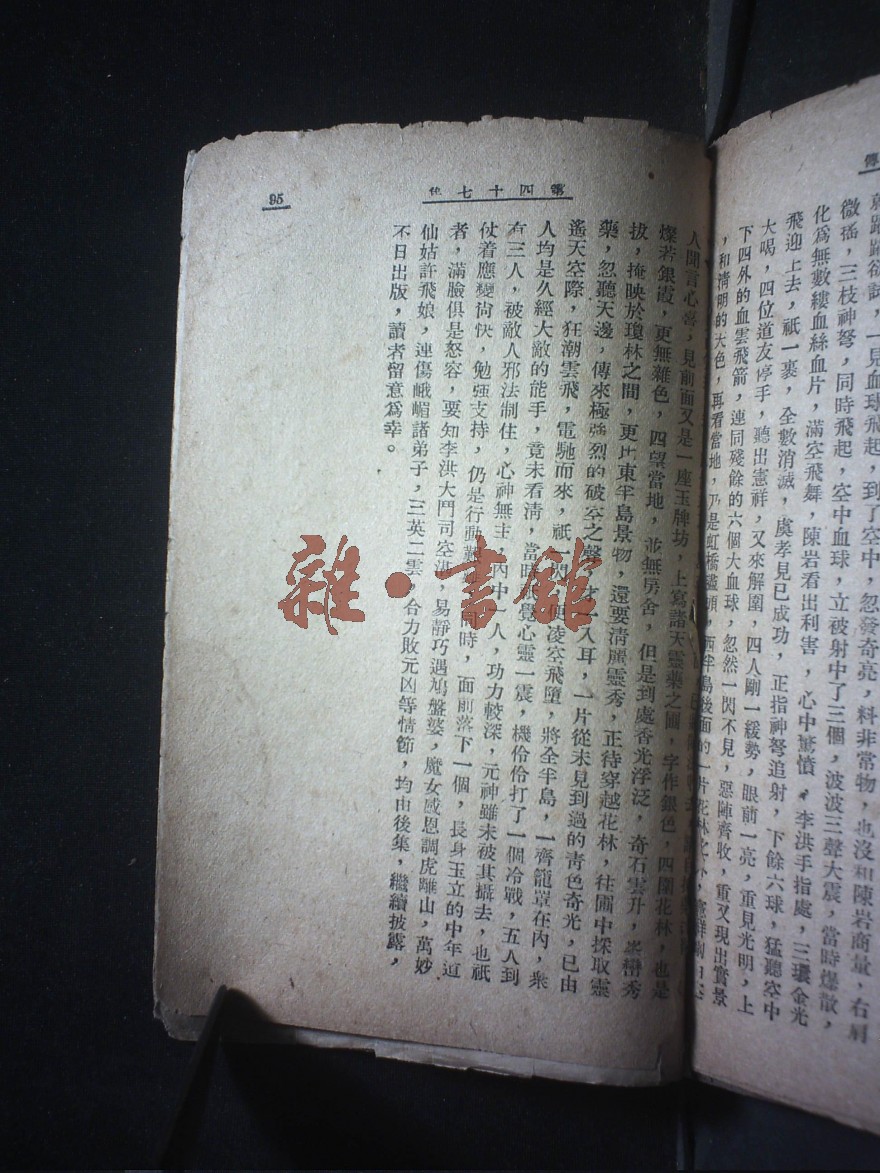 就躍躍欲試，一見血球飛起，到了空中，忽發奇亮，料非常物，也沒和陳岩商量，右肩
微搖，三枝神弩，同時飛起，空中血球，立被射中了三個，波波三聲大震，當時爆散，
化爲無數縷血絲血片，滿空飛舞，陳岩看出利害，心中驚憤，李洪手指處，三環金光
飛迎上去，祇一裹，全數消滅，虞孝見已成功，正指神弩追射，下餘六球，猛聽空中
大喝，四位道友停手，聽出憲祥，又來解圍，四人剛一緩勢，眼前一亮，重見光明，上
下四外的血雲飛箭，連同殘餘的六個大血球，忽然一閃不見，惡陣齊收，重又現出實景
，和淸明的天色，再看當地，乃是虹橋盡頭，西半島後面的一片花林之外，憲祥
第四十七集
95
人聞言心喜，見前面又是一座玉牌坊，上寫諸天靈藥之圃，字作銀色，四圍花林，也是
燦若銀霞，更無雜色，四望當地，並無房舍，但是到處香光浮泛，奇石雲升，峯巒秀
拔，掩映於瓊林之間，更比東半島景物，還要淸麗靈秀，正待穿越花林，往圃中採取靈
藥，忽聽天邊，傳來極強烈的破空之聲，才一入耳，一片從未見到過的靑色奇光，已由
遙天空際，狂潮雲飛，電馳而來，祇一閃，便凌空飛墮，將全半島，一齊籠罩在內，衆
人均是久經大敵的能手，竟未看淸，當時覺心靈一震，機伶伶打了一個冷戰，五人到
有三人，被敵人邪法制住，心神無主，內中一人，功力較深，元神雖未被其攝去，也祇
仗着應變尙快，勉强支持，仍是行動艱難，同時，面前落下一個，長身玉立的中年道
者，滿臉俱是怒容，要知李洪大鬥司空湛，易靜巧遇鳩盤婆，魔女感恩調虎離山，萬妙
仙姑許飛娘，連傷峨嵋諸弟子，三英二雲，合力敗元凶等情節，均由後集，繼續披露，
不日出版，讀者留意爲幸。
雜·書館